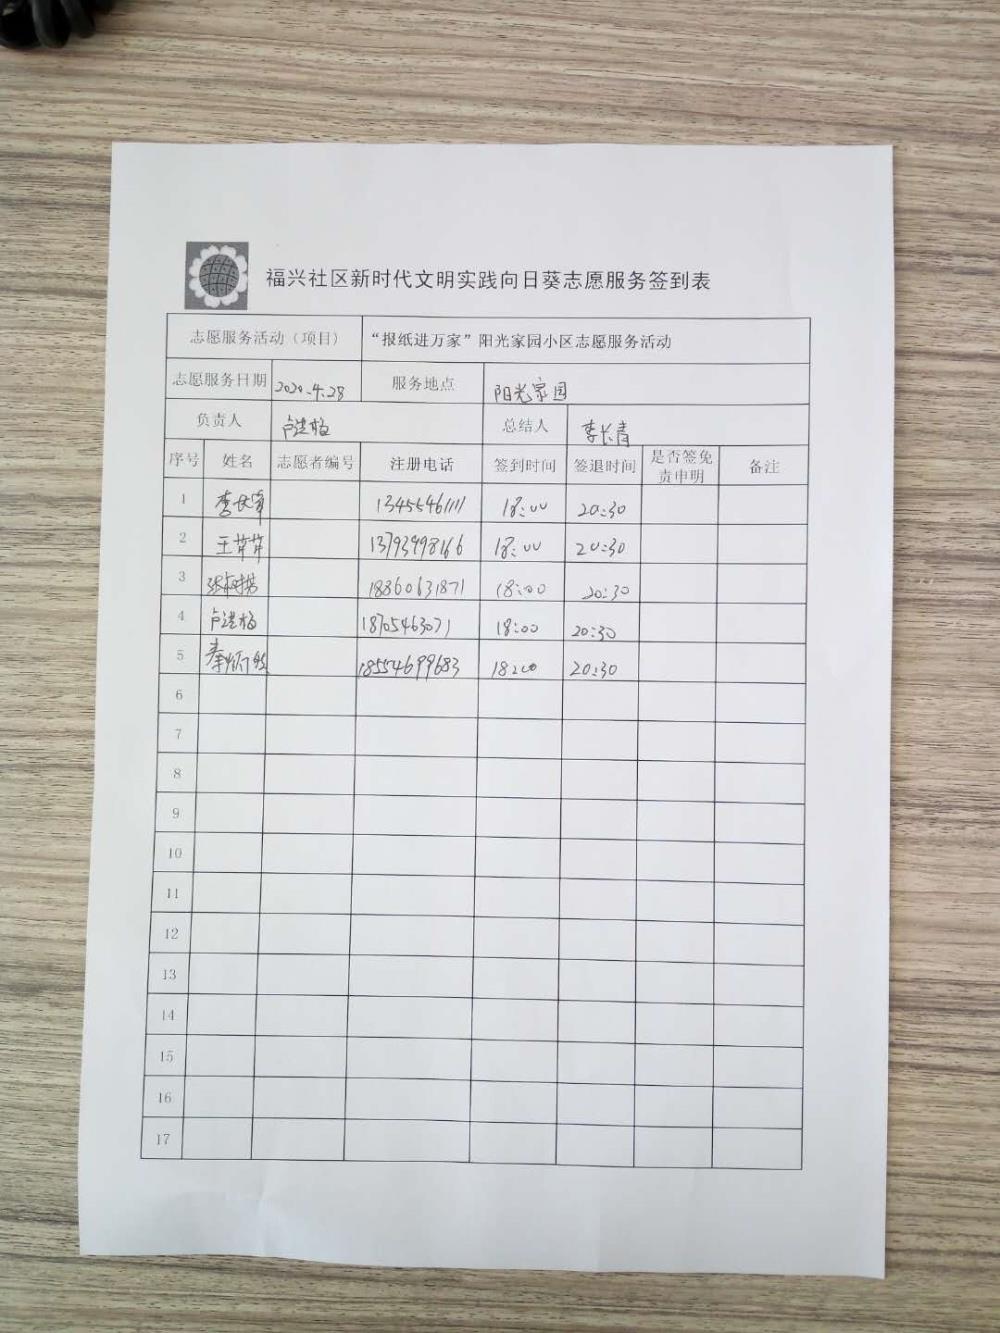 福兴社区新时代文明实践向日葵志愿服务签到表
志愿服务活动（项目） “报纸进万家”阳光家园小区志愿服务活动
志愿服务日期 2020.4.28 服务地点 阳光家园
负责人 总结人 李长青
序号 姓名 志愿者编号 注册电话 签到时间 签退时间 是否签免责申明 备注
1 13455461111 18:00 20:30
2 王芹芹 13793998166 18:00 20:30
3 18860631871 18:00 20:30
4 18705463071 18:00 20:30
5 18554699683 18:00 20:30
6
7
8
9
10
11
12
13
14
15
16
17